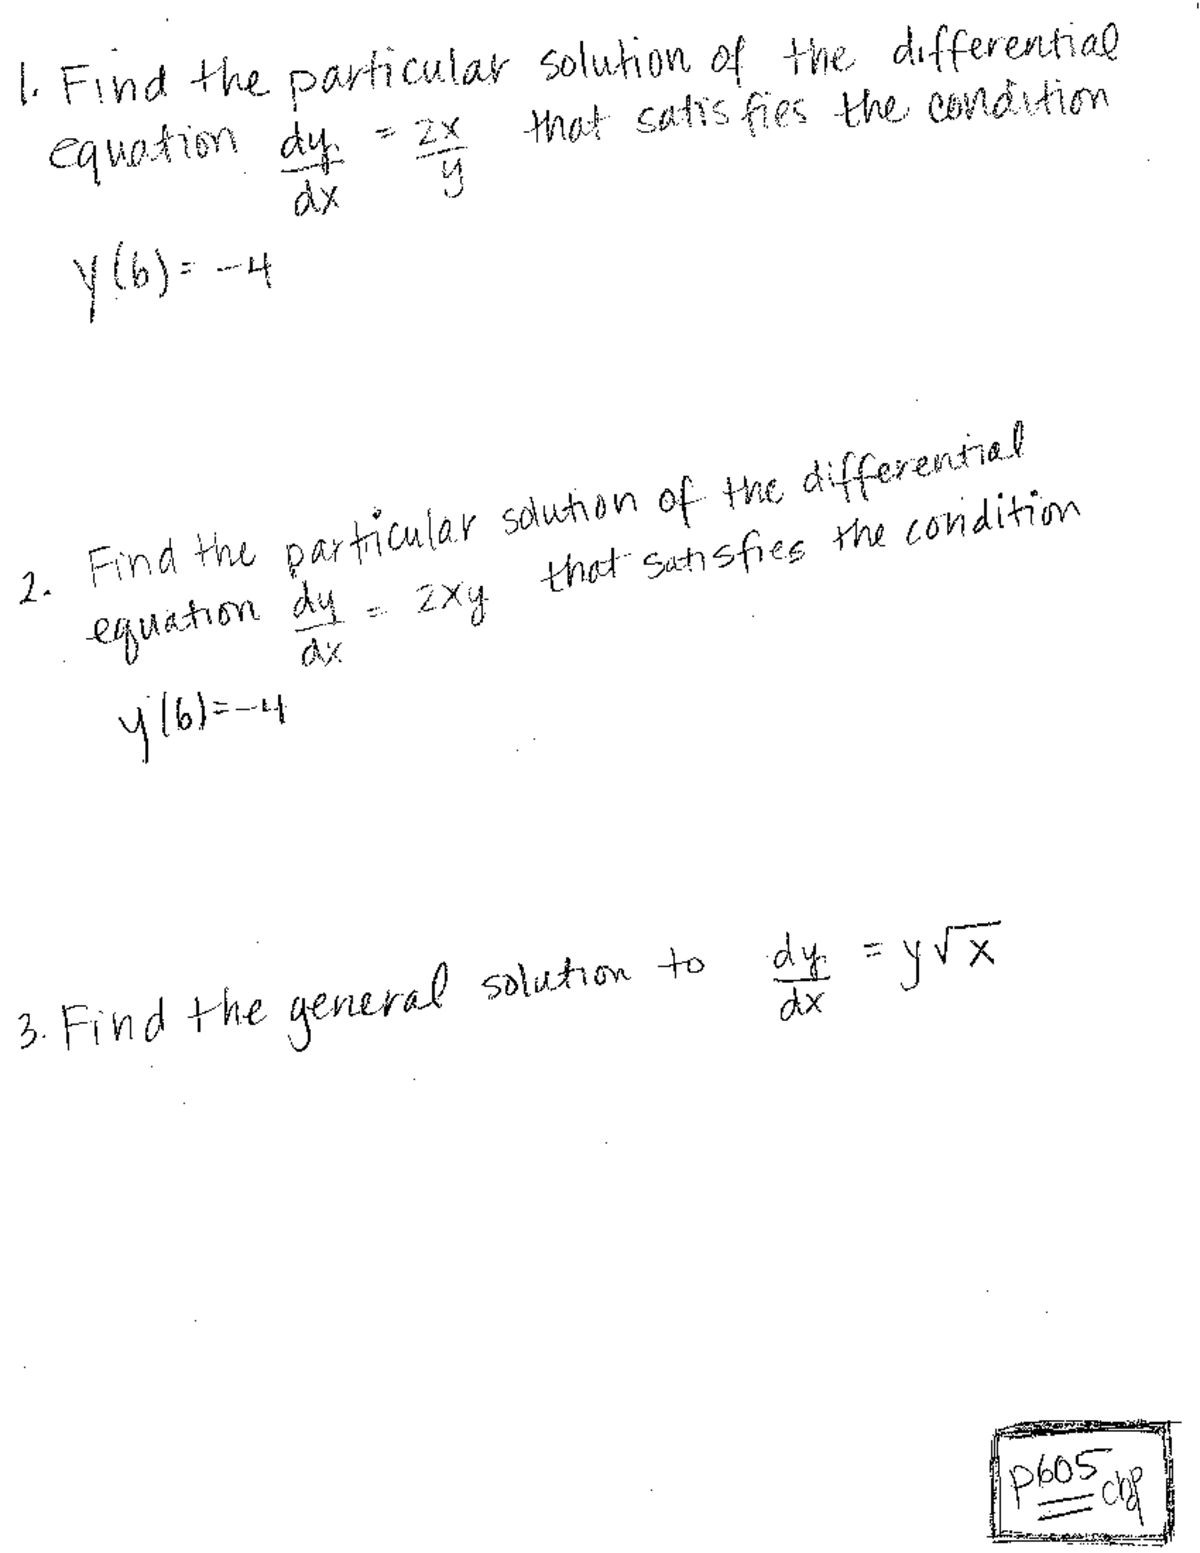 1. Find the particular solution of the differential
equation dy/dx = 2x/y that satisfies the condition
y(6) = -4
2. Find the particular solution of the differential
equation dy/dx = 2xy that satisfies the condition
y(6)=-4
3. Find the general solution to dy/dx = y√x
p605